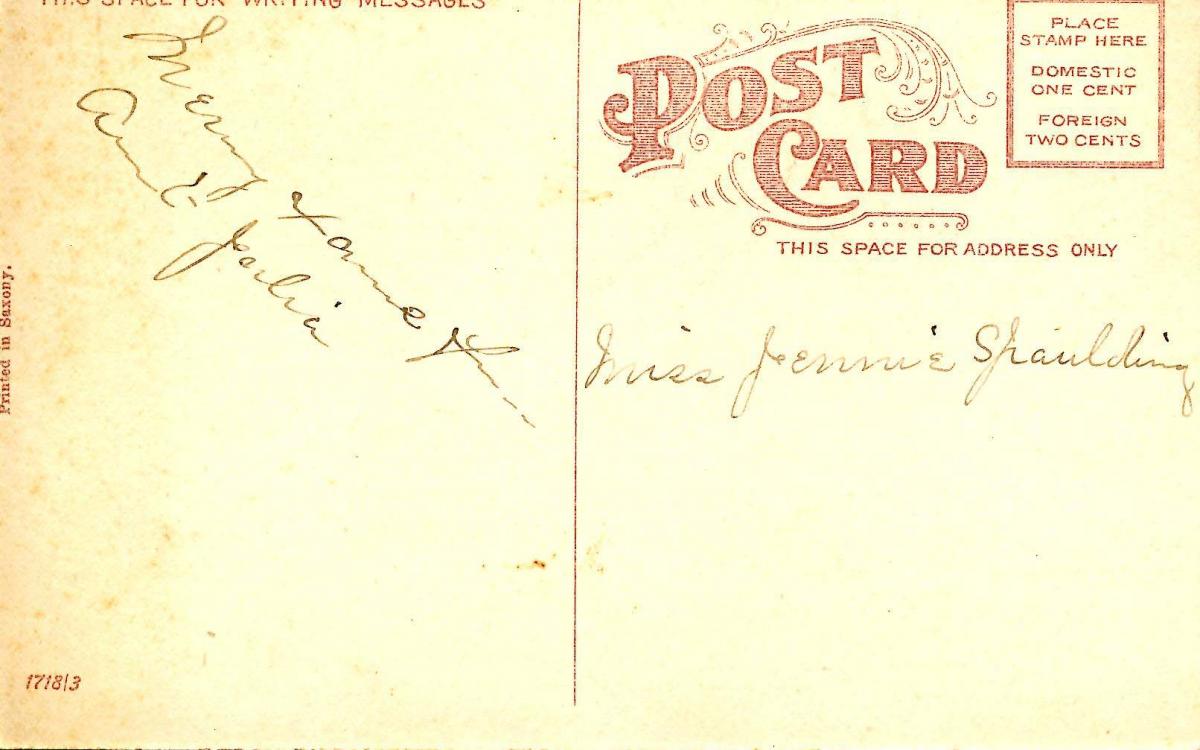 THIS SPACE FOR WRITING MESSAGES
Merry Xmas
Aunt Julia
Printed in Saxony.
1718/3
POST
CARD
PLACE
STAMP HERE
DOMESTIC
ONE CENT
FOREIGN
TWO CENTS
THIS SPACE FOR ADDRESS ONLY
Miss Jennie Spaulding